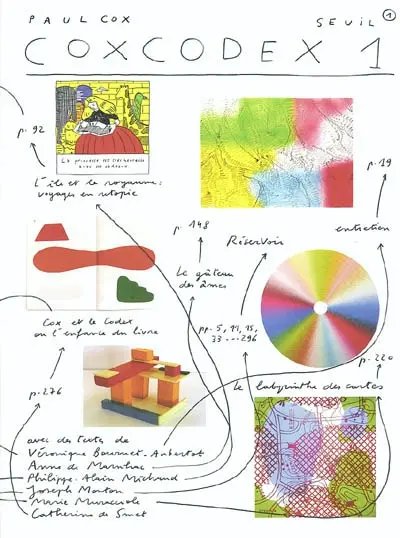 PAUL COX
SEUIL
1
COXCODEX 1
p. 92
p. 19
L'île et le royaume :
voyages en utopie
p. 148
Réservoir
entretien
Le gâteau
des âmes
Cox et le Codex
ou l'enfance du livre
pp. 5, 11, 15,
33 ... 296
p. 220
p. 276
Le labyrinthe des cartes
avec des textes de
Véronique
Anne de
Philippe-Alain Michaud
Joseph
Marie Muracciole
Catherine de Smet